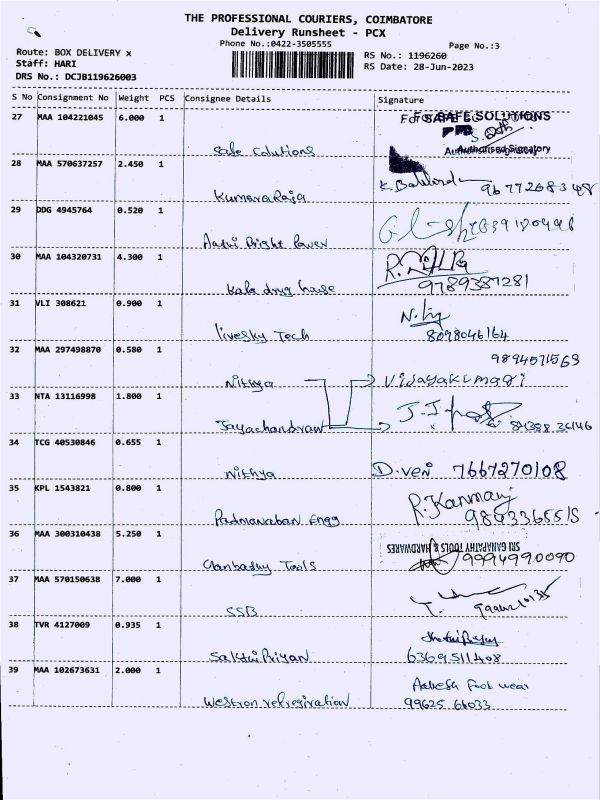 THE PROFESSIONAL COURIERS, COIMBATORE
Delivery Runsheet - PCX
Phone No.:0422-3505555
Page No.:3
Route: BOX DELIVERY x
Staff: HARI
DRS No.: DCJB119626003
RS No.: 1196260
RS Date: 28-Jun-2023
S No Consignment No Weight PCS Consignee Details Signature
27 MAA 104221045 6.000 1 Safe Solutions
For SAFE SOLUTIONS
Authorised Signatory
28 MAA 570637257 2.450 1 KumaraRaja 9677268348
29 DDG 4945764 0.520 1 Aathi Bright Power
30 MAA 104320731 4.300 1 Kala drug house 9789387281
31 VLI 308621 0.900 1 livesky Tech 8098046164
32 MAA 297498870 0.580 1 Nithya 9894571563
Vijayakumari
33 NTA 13116998 1.800 1 Jayachandran
34 TCG 40530846 0.655 1 Nithya D.veni 7667270108
35 KPL 1543821 0.800 1 Padmanaban Engg R.Kanmani
36 MAA 300310438 5.250 1 Tools
SRI GANAPATHY TOOLS & HARDWARES
9994990090
37 MAA 570150638 7.000 1 SSB
38 TVR 4127009 0.935 1 SakthiPriyan 6369511408
39 MAA 102673631 2.000 1 Westron refregiration
Foot wear
99625 66033